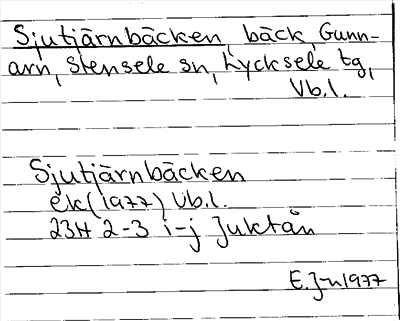 Sjutjärnbäcken, bäck, Gunn-
arn, Stensele sn, Lycksele tg,
Vb.l.
Sjutjärnbäcken
ek (1977) Vb.l.
23H 2-3 i-j Juktån
E.J-n 1977